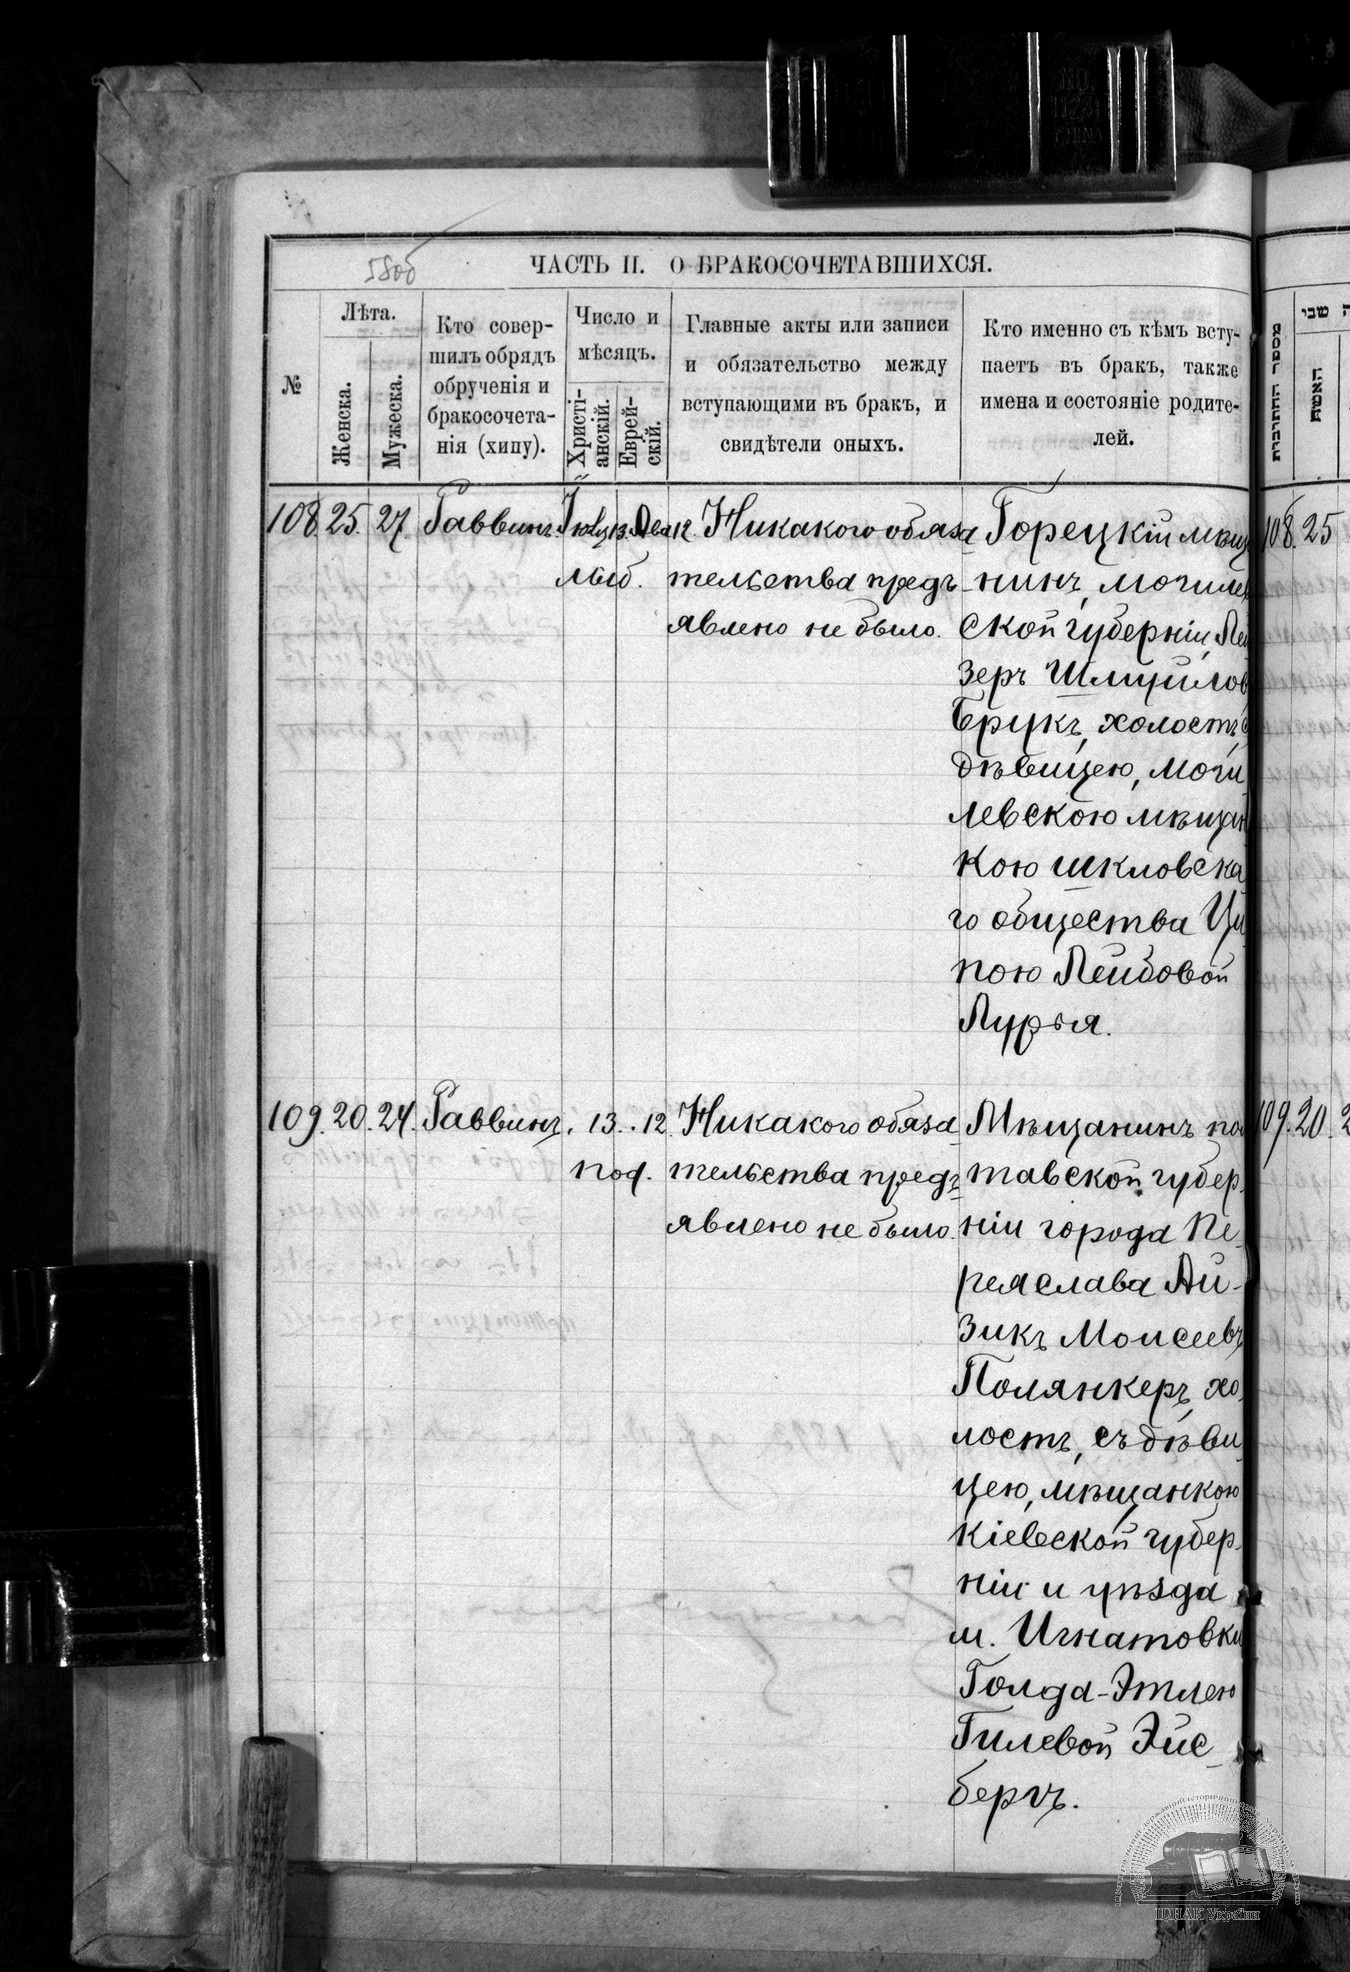 58об
ЧАСТЬ II. О БРАКОСОЧЕТАВШИХСЯ.
№
Лѣта.
Женска.
Мужеска.
Кто совер-
шилъ обрядъ
обрученія и
бракосочета-
нія (хипу).
Число и
мѣсяцъ.
Христі-
анскій.
Еврей-
скій.
Главные акты или записи
и обязательство между
вступающими въ бракъ, и
свидѣтели оныхъ.
Кто именно съ кѣмъ всту-
паетъ въ бракъ, также
имена и состояніе родите-
лей.
מספר החתונות
האשה
שני
108. 25. 27. Раввинъ. 13. 12. Никакого обяза
тельства предъ-
явлено не было.
Горецкій мѣща
нинъ, могилев
ской губерніи, Лей
зеръ Шмуйлов
Брукъ, холостъ, с
дѣвицею, моги
левскою мѣщан
кою шкловска
го общества Ци
пою Лейбовой
Лурья.
108. 25
109. 20. 24. Раввинъ. 13. 12. Никакого обяза
тельства предъ
явлено не было.
Мѣщанинъ пол
тавской губер-
ніи города Пе-
реяслава Ай-
зикъ Моисеевъ
Полянкеръ, хо-
лостъ, съ дѣви
цею, мѣщанкою
Кіевской губер-
ніи и уѣзда
м. Игнатовки
Голда-Этлею
Гилевой Эйс-
бергъ.
109. 20. 2
ЦДІАК України